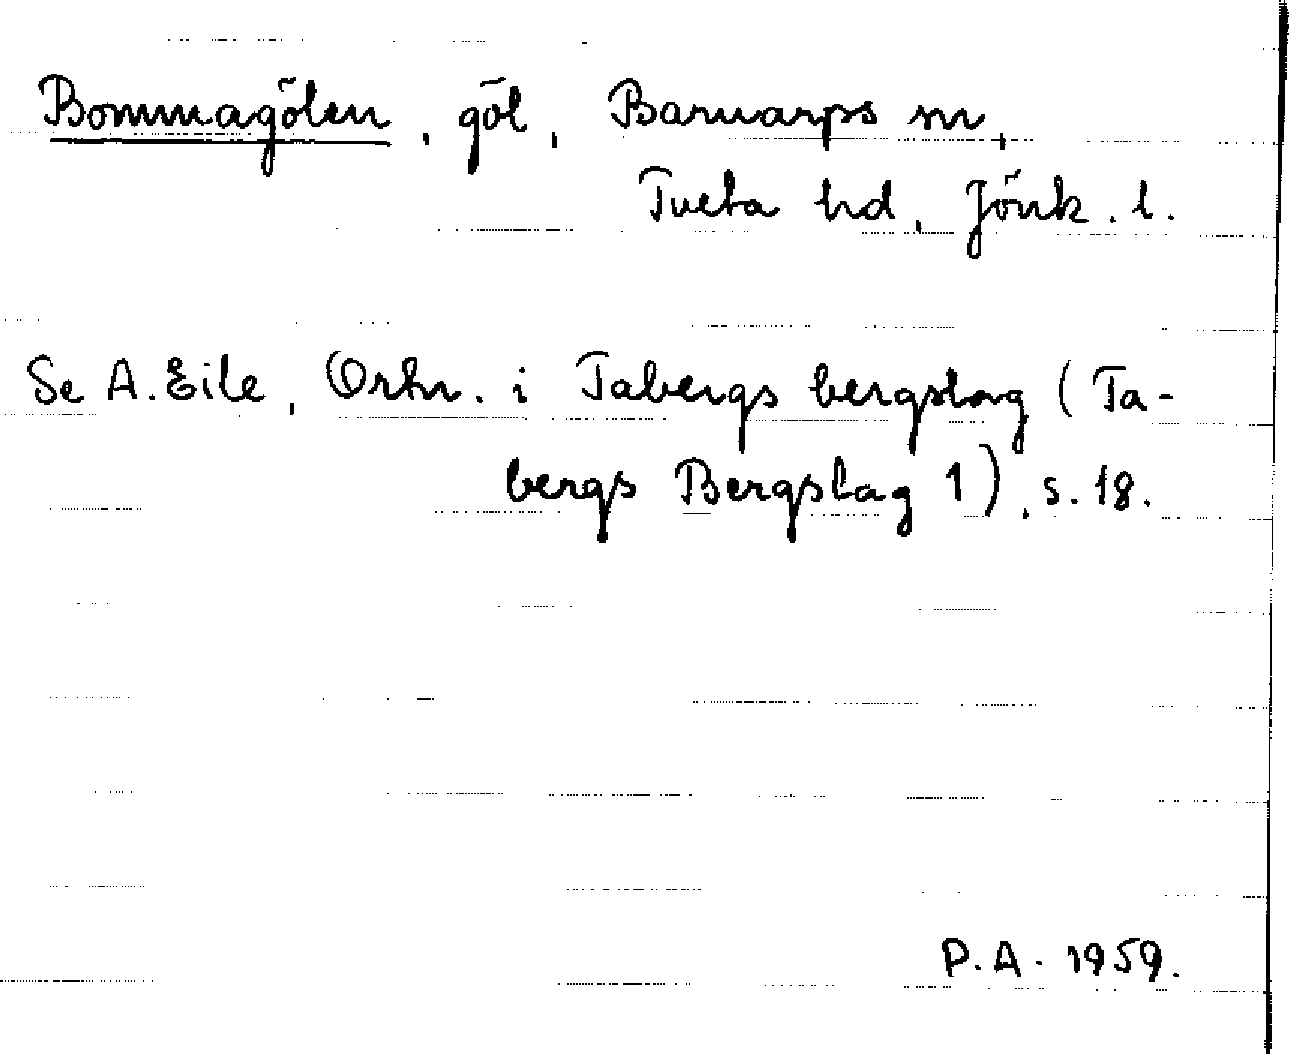 Bommagölen, göl, Barnarps sn,
Tveta hd, Jönk. l.
Se A. Eile, Ortn. i Tabergs bergslag (Ta-
bergs Bergslag 1), s. 18.
P.A. 1959.